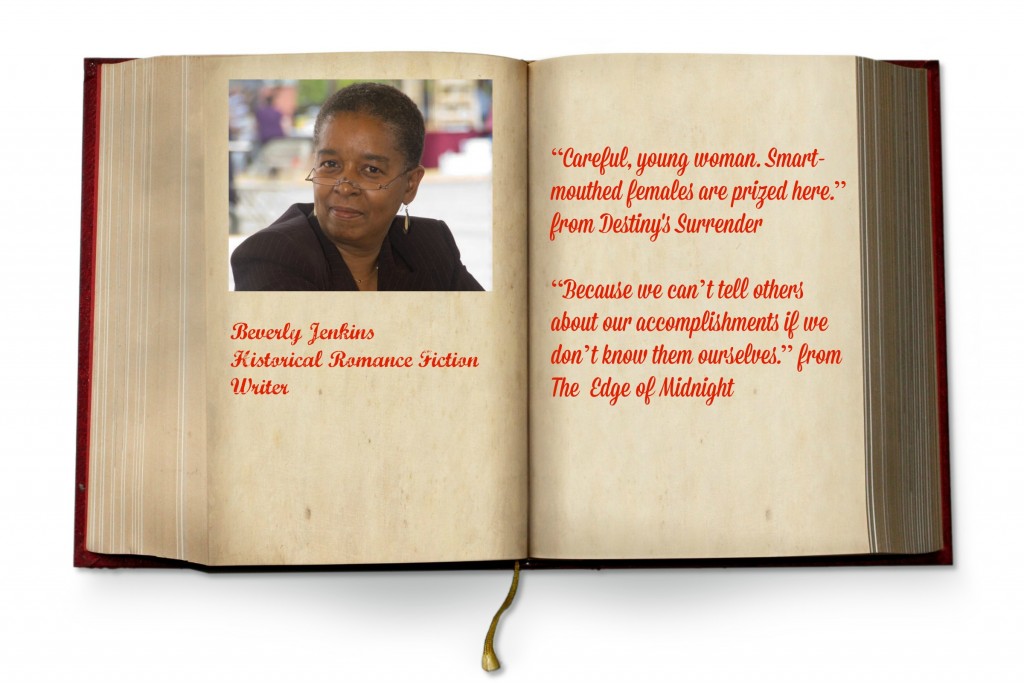 Beverly Jenkins
Historical Romance Fiction
Writer
“Careful, young woman. Smart-
mouthed females are prized here.”
from Destiny's Surrender
“Because we can’t tell others
about our accomplishments if we
don’t know them ourselves.” from
The Edge of Midnight